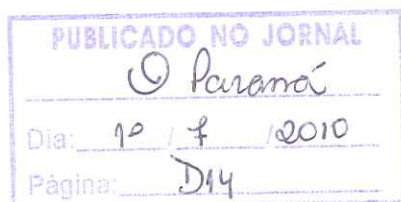 PUBLICADO NO JORNAL
O Paraná
Dia: 1º / 7 / 2010
Página: D14